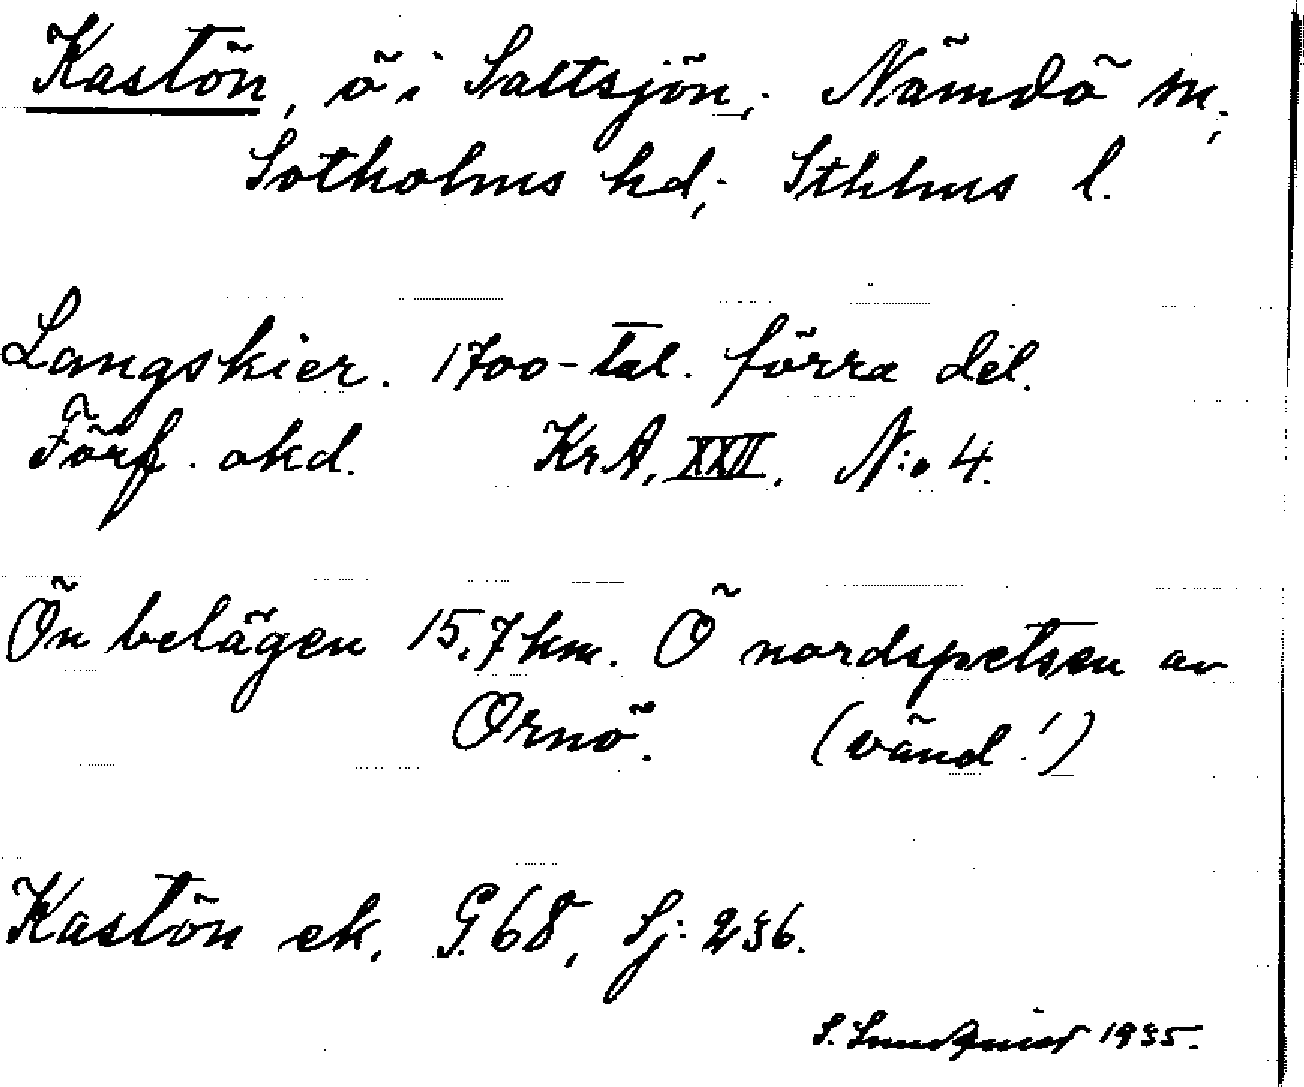 Kastön, ö i Saltsjön; Nämdö sn;
Sotholms hd; Sthlms l.
Langskier. 1700-tal. förra del.
Förf. okd. KrA, XXII, N:o 4.
Ön belägen 15,7 km. Ö nordspetsen av
Ornö. (vänd!)
Kastön ek. G. 68, Sj: 236.
S. Lundquist 1935.